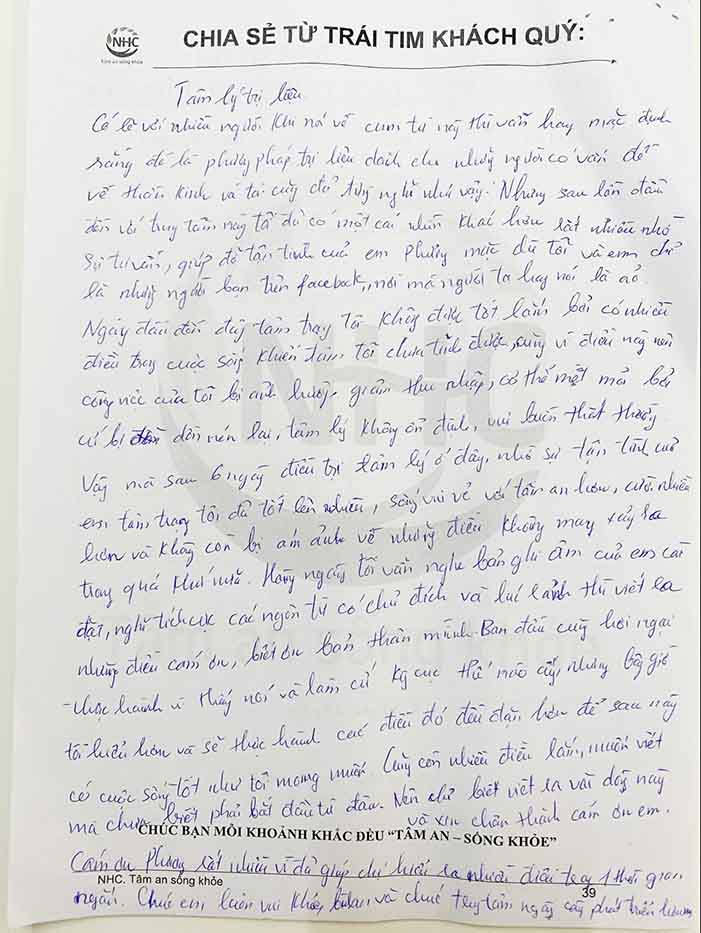 NHC
Tâm an sống khỏe
CHIA SẺ TỪ TRÁI TIM KHÁCH QUÝ:
Tâm lý trị liệu
Có lẽ với nhiều người khi nói về cụm từ này thì vẫn hay mặc định
rằng đó là phương pháp trị liệu dành cho những người có vấn đề
về thần kinh và tôi cũng đã từng nghĩ như vậy. Nhưng sau lần đầu
đến với trung tâm này tôi đã có một cái nhìn khác hơn rất nhiều nhờ
sự tư vấn, giúp đỡ tận tình của em Phương mặc dù tôi và em chỉ
là những người bạn trên facebook, nơi mà người ta hay nói là ảo.
Ngày đầu đến đây tâm trạng tôi không được tốt lắm bởi có nhiều
điều trong cuộc sống khiến tâm tôi chưa tĩnh được, cũng vì điều này nên
công việc của tôi bị ảnh hưởng, giảm thu nhập, cơ thể mệt mỏi bởi
cứ bị dồn nén lại, tâm lý không ổn định, vui buồn thất thường.
Vậy mà sau 6 ngày điều trị tâm lý ở đây, nhờ sự tận tình của
em tâm trạng tôi đã tốt lên nhiều, sống vui vẻ với tâm an hơn, cười nhiều
hơn và không còn bị ám ảnh về những điều không may xảy ra
trong quá khứ nữa. Hàng ngày tôi vẫn nghe bản ghi âm của em cài
đặt, nghĩ tích cực các ngôn từ có chủ đích và lúc rảnh thì viết ra
những điều cám ơn, biết ơn bản thân mình. Ban đầu cũng hơi ngại
thực hành vì thấy nói và làm cứ kỳ cục thế nào ấy, nhưng bây giờ
tôi hiểu hơn và sẽ thực hành các điều đó đều đặn hơn để sau này
có cuộc sống tốt như tôi mong muốn. Cũng còn nhiều điều lắm, muốn viết
mà chưa biết phải bắt đầu từ đâu. Nên chỉ biết viết ra vài dòng này
và xin chân thành cám ơn em.
CHÚC BẠN MỖI KHOẢNH KHẮC ĐỀU “TÂM AN – SỐNG KHỎE”
Cám ơn Phương rất nhiều vì đã giúp chị hiểu ra nhiều điều trong 1 thời gian
NHC. Tâm an sống khỏe
39
ngắn. Chúc em luôn vui khỏe, và chúc trung tâm ngày càng phát triển